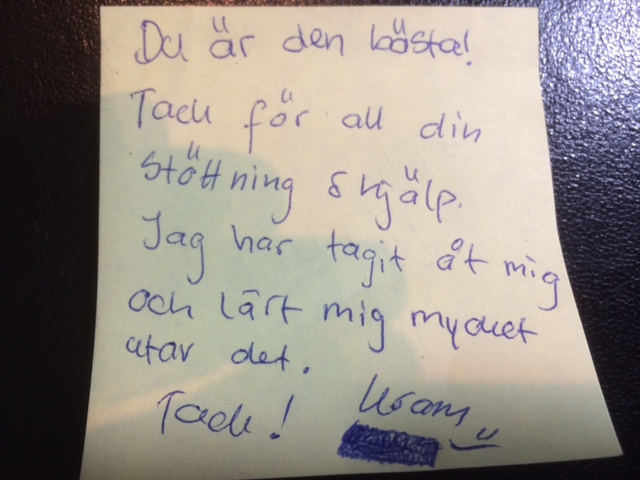 Du är den bästa!
Tack för all din
stöttning & hjälp.
Jag har tagit åt mig
och lärt mig mycket
utav det.
Tack! Kram